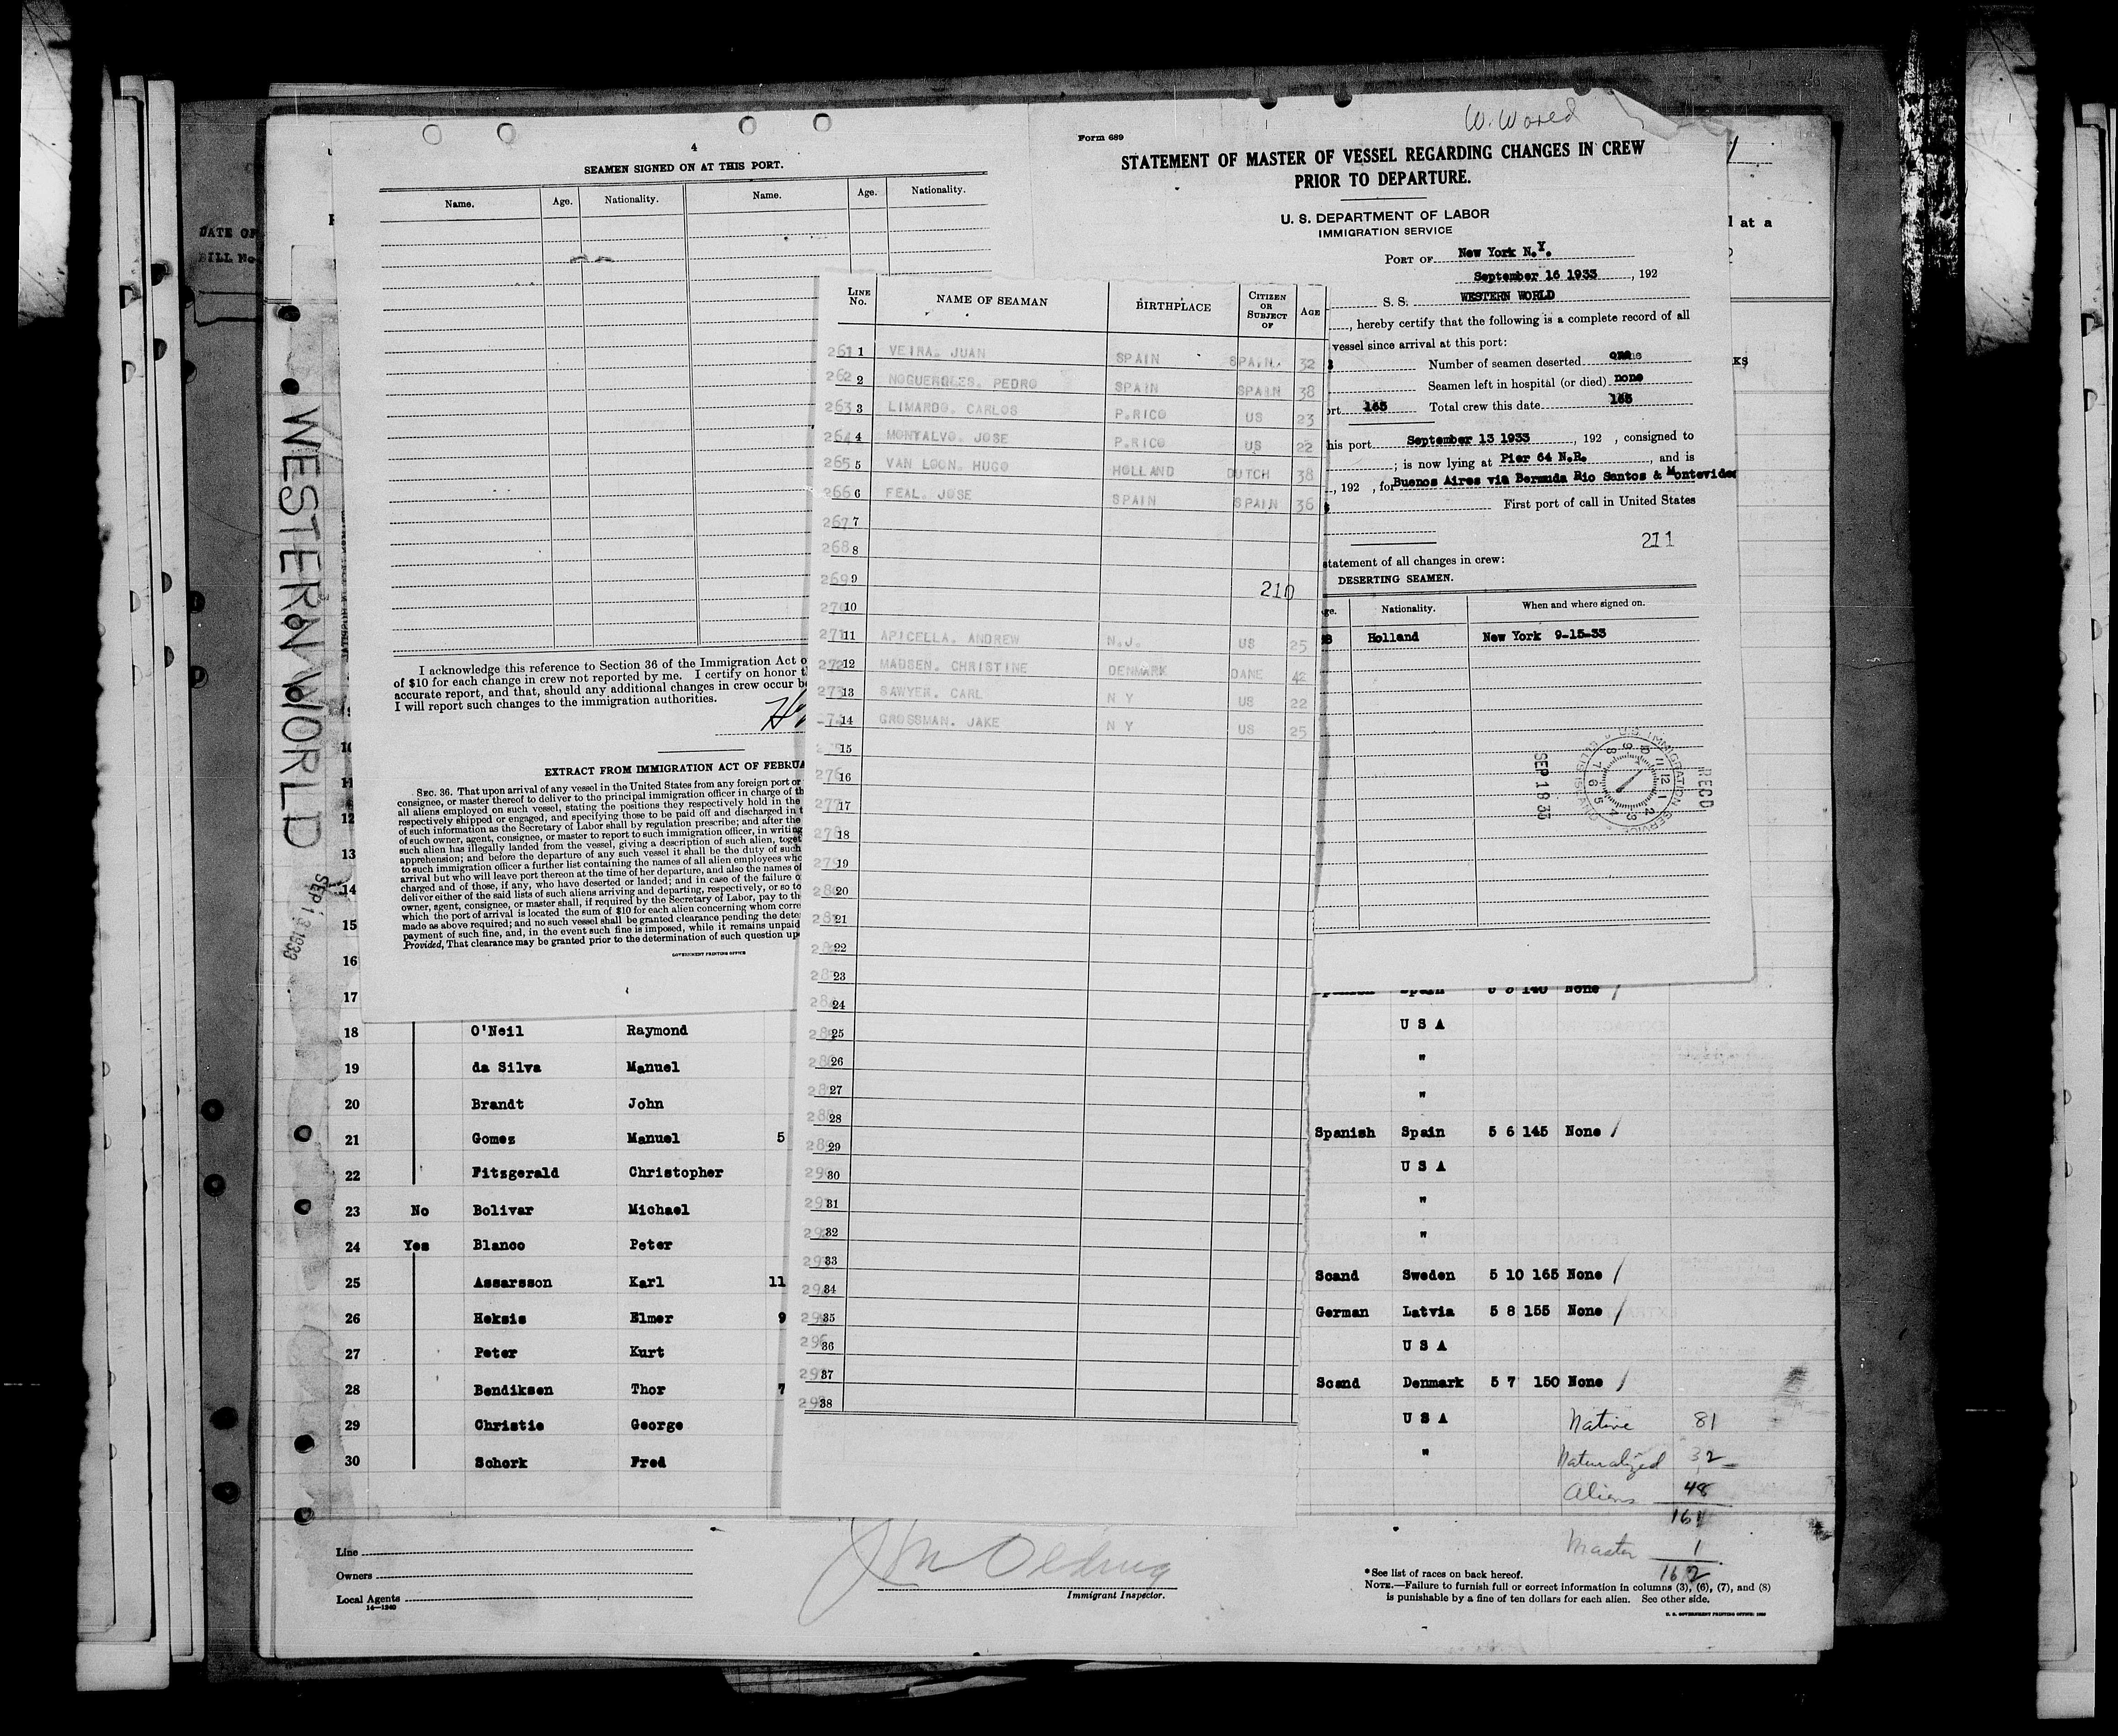 W. World
4
SEAMEN SIGNED ON AT THIS PORT.
Name. Age. Nationality. Name. Age. Nationality.
I acknowledge this reference to Section 36 of the Immigration Act o
of $10 for each change in crew not reported by me. I certify on honor t
accurate report, and that, should any additional changes in crew occur b
I will report such changes to the immigration authorities.
EXTRACT FROM IMMIGRATION ACT OF FEBRUA
SEC. 36. That upon arrival of any vessel in the United States from any foreign port or
consignee, or master thereof to deliver to the principal immigration officer in charge of th
all aliens employed on such vessel, stating the positions they respectively hold in the
respectively shipped or engaged, and specifying those to be paid off and discharged in t
of such information as the Secretary of Labor shall by regulation prescribe; and after the
of such owner, agent, consignee, or master to report to such immigration officer, in writing
such alien has illegally landed from the vessel, giving a description of such alien, toget
apprehension; and before the departure of any such vessel it shall be the duty of such
to such immigration officer a further list containing the names of all alien employees who
arrival but who will leave port thereon at the time of her departure, and also the names of
charged and of those, if any, who have deserted or landed; and in case of the failure o
deliver either of the said lists of such aliens arriving and departing, respectively, or so to
owner, agent, consignee, or master shall, if required by the Secretary of Labor, pay to th
which the port of arrival is located the sum of $10 for each alien concerning whom corre
made as above required; and no such vessel shall be granted clearance pending the dete
payment of such fine, and, in the event such fine is imposed, while it remains unpaid
Provided, That clearance may be granted prior to the determination of such question up
GOVERNMENT PRINTING OFFICE
Form 689
STATEMENT OF MASTER OF VESSEL REGARDING CHANGES IN CREW
PRIOR TO DEPARTURE.
U. S. DEPARTMENT OF LABOR
IMMIGRATION SERVICE
PORT OF New York N.Y.
September 16 1933, 192
S. S. WESTERN WORLD
, hereby certify that the following is a complete record of all
vessel since arrival at this port:
Number of seamen deserted
Seamen left in hospital (or died) none
ort 165 Total crew this date 165
his port September 13 1933, 192 , consigned to
; is now lying at Pier 64 N.R., and is
, 192 , for Buenos Aires via Bermuda Rio Santos & Montevideo
First port of call in United States
211
statement of all changes in crew:
DESERTING SEAMEN.
ge. Nationality. When and where signed on.
Holland New York 9-15-33
SEP 18 33
U.S. IMMIGRATION SERVICE
RECD
LINE No. NAME OF SEAMAN BIRTHPLACE CITIZEN OR SUBJECT OF AGE
261 1 VEIRA. JUAN SPAIN SPAIN. 32
262 2 NOGUEROLES. PEDRO SPAIN SPAIN 38
263 3 LIMARDO. CARLOS P.RICO US 23
264 4 MONTALVO. JOSE P.RICO US 22
265 5 VAN LOON. HUGO HOLLAND DUTCH 38
266 6 FEAL. JOSE SPAIN SPAIN 36
267 7
268 8
269 9 210
270 10
271 11 APICELLA. ANDREW N.J. US 25
272 12 MADSEN. CHRISTINE DENMARK DANE 42
273 13 SAWYER. CARL N Y US 22
14 GROSSMAN. JAKE N Y US 25
15
276 16
277 17
278 18
279 19
280 20
281 21
22
23
24
25
26
27
28
29
30
31
32
33
34
35
296 36
37
38
DATE OF
BILL No
WESTERN WORLD
SEP 13 1933
l at a
KS
10
11
12
13
14
15
16
17 None /
18 O'Neil Raymond U S A
19 da Silva Manuel "
20 Brandt John "
21 Gomez Manuel 5 Spanish Spain 5 6 145 None /
22 Fitzgerald Christopher U S A
23 No Bolivar Michael "
24 Yes Blanco Peter "
25 Assarsson Karl 11 Scand Sweden 5 10 165 None /
26 Heksis Elmer 9 German Latvia 5 8 155 None /
27 Peter Kurt U S A
28 Bendiksen Thor 7 Scand Denmark 5 7 150 None /
29 Christie George U S A
30 Schork Fred "
Native 81
Naturalized 32
Aliens 48
161
Master 1
162
Line
Owners
Local Agents
14—1240
Immigrant Inspector.
*See list of races on back hereof.
NOTE.—Failure to furnish full or correct information in columns (3), (6), (7), and (8)
is punishable by a fine of ten dollars for each alien. See other side.